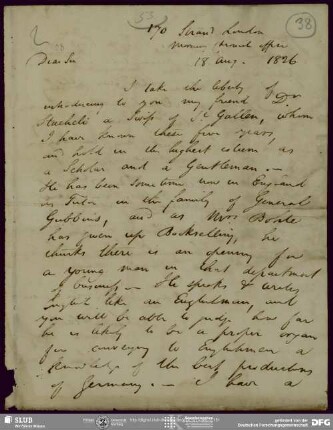 38
190 Strand London
Morning Journal office
18 Aug. 1826
Dear Sir
I take the liberty of
introducing to you my friend Dr
Staehele a Swiss of St Gallen, whom
I have known these five years,
and hold in the highest esteem as
a Scholar and a Gentleman. —
He has been sometime now in England
as Tutor in the family of General
Gubbins, and as Mr Bohte
has given up Bookselling, he
thinks there is an opening for
a young man in that department
of business — He speaks & writes
English like an Englishman, and
you will be able to judge how far
he is likely to be a proper organ
for conveying to Englishmen a
knowledge of the best productions
of Germany. — I have a
SLUB
Wir führen Wissen.
DFG